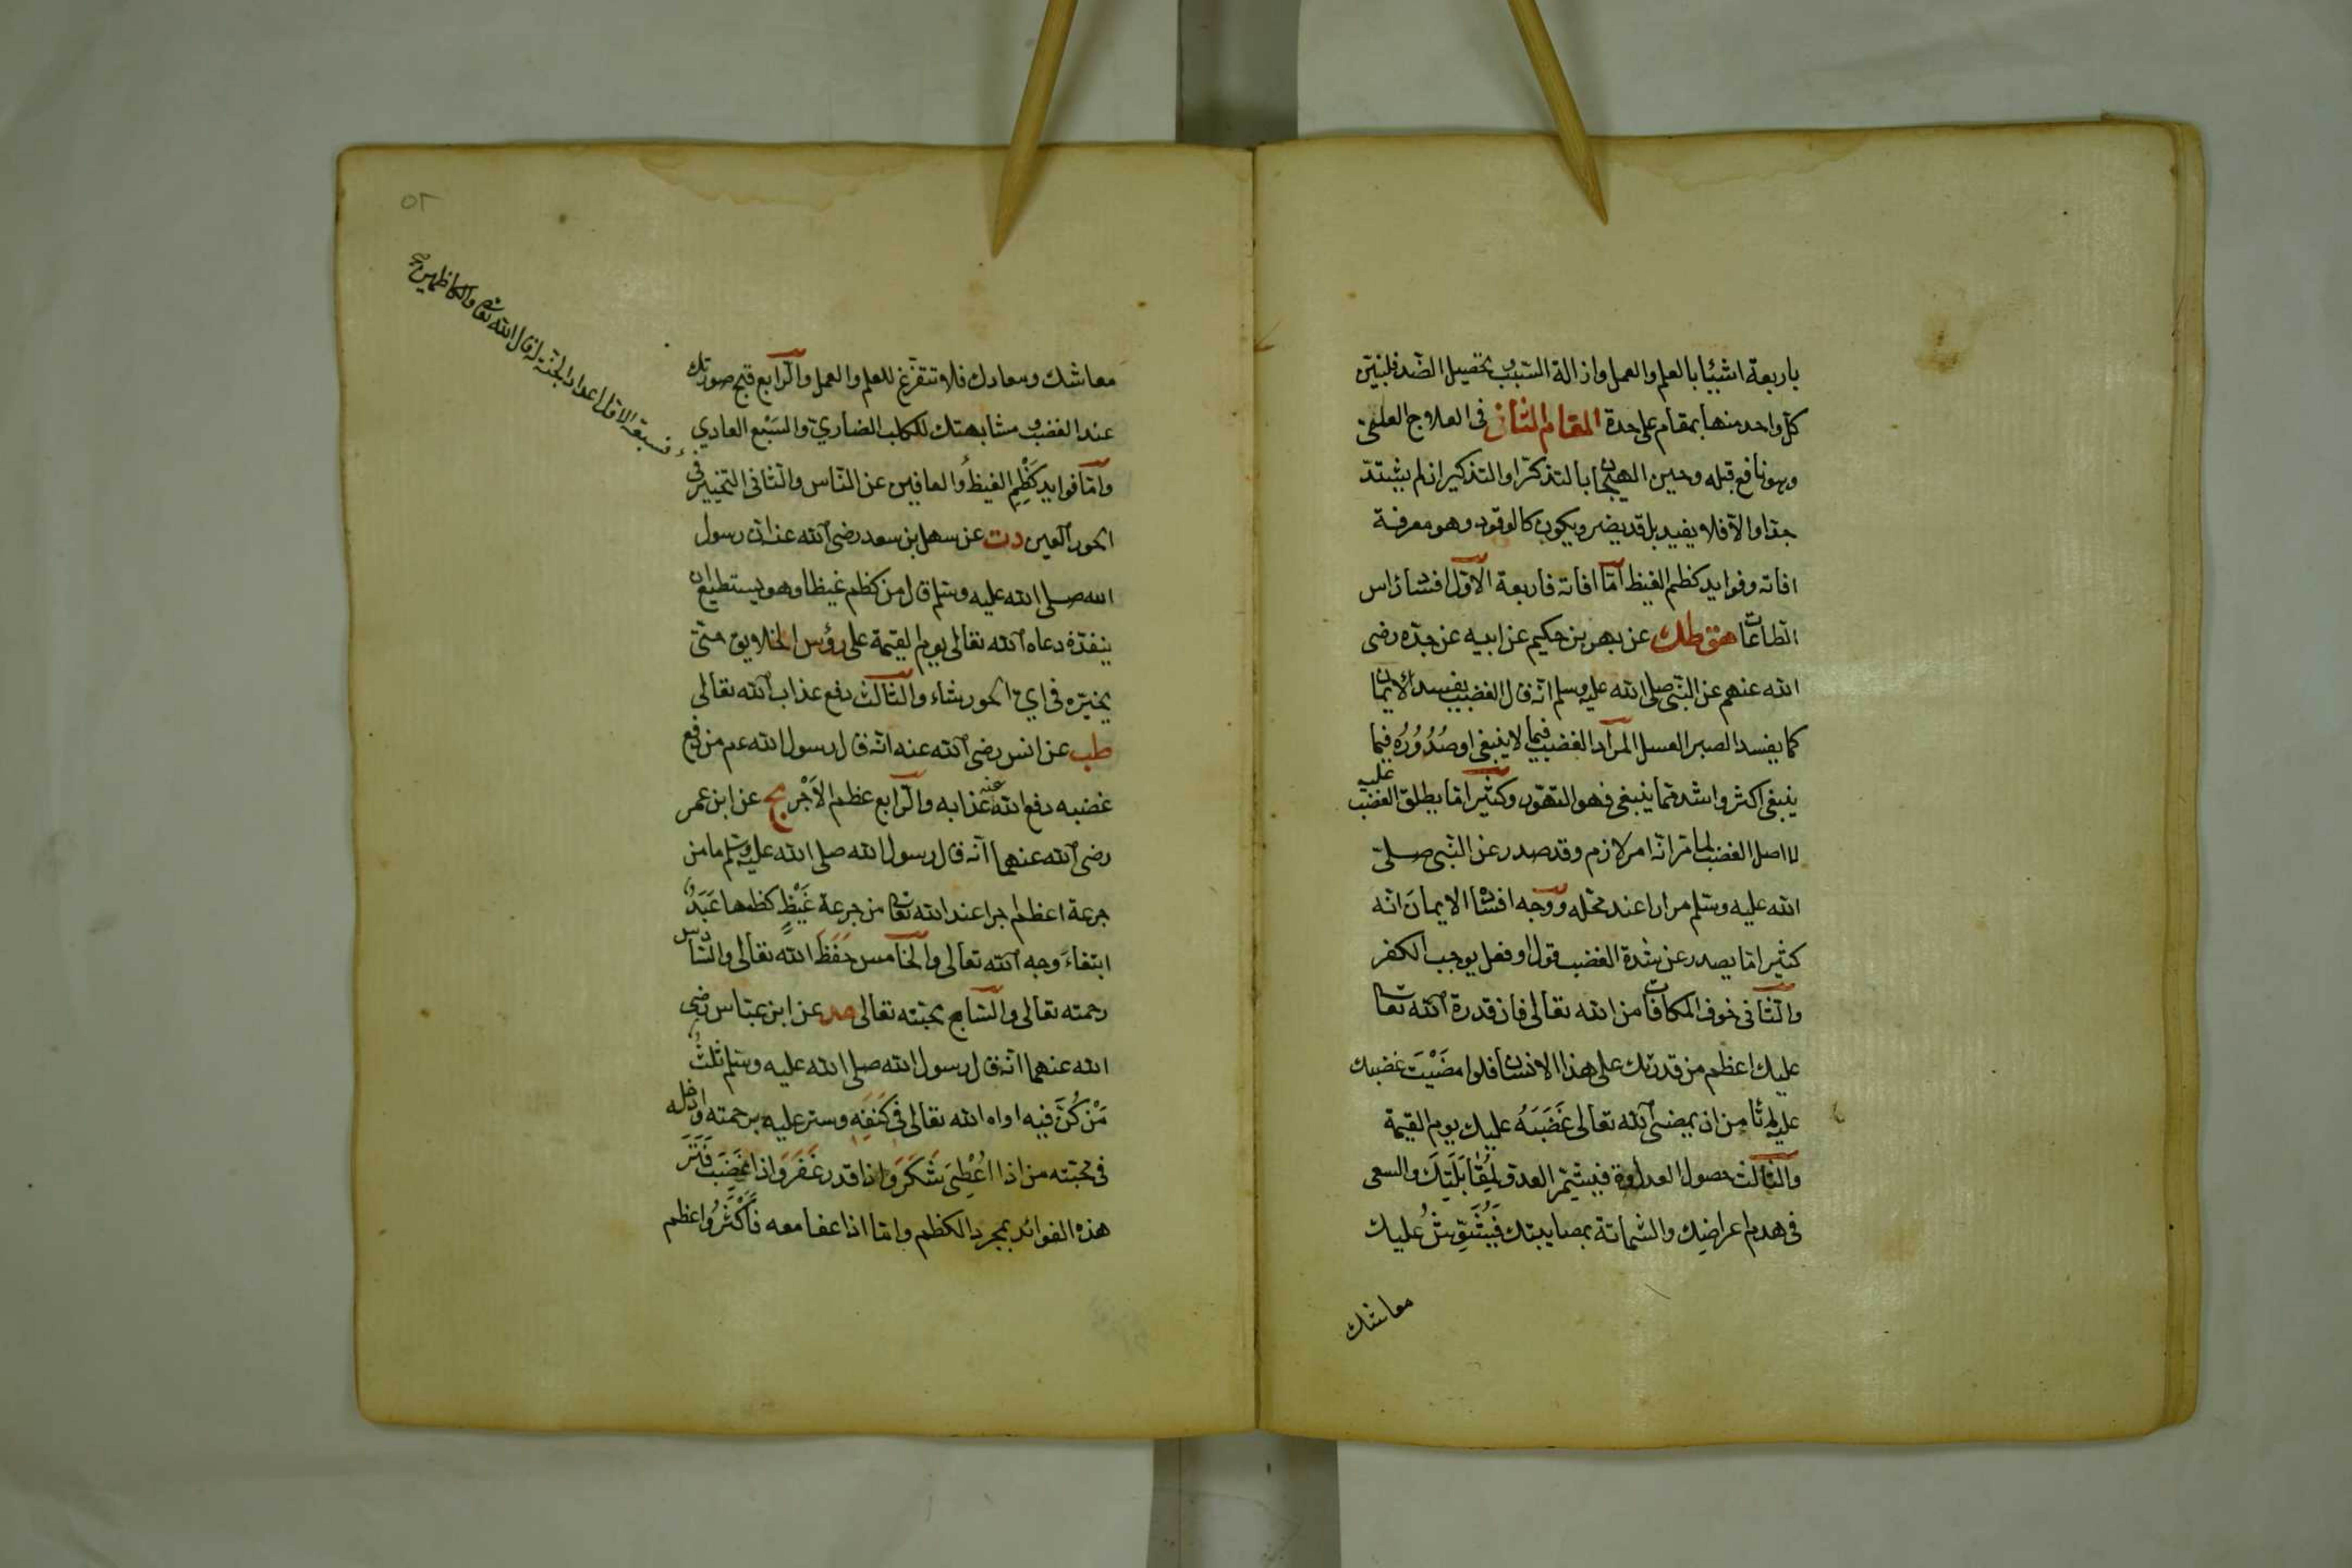 باربعة اشيئا بالعلم والعمل وازالة السبب وتحصيل الضد فلنبين
كل واحد منها بمقام على حدة المقام الثاني فى العلاج العلمى
وهو نافع قبله وحين الهيجان بالتذكر او التذكير ان لم يشتد
جدا والا فلا يفيد بل قد يضر ويكون كالوقود وهو معرفة
افاته وفوايد كظم الغيظ اما افاته فاربعة الاول افساد راس
الطاعات هق طك عن بهز بن حكيم عن ابيه عن جده رضى
الله عنهم عن النبى صلى الله عليه وسلم انه قال الغضب يفسد الايمان
كما يفسد الصبر العسل المراد الغضب فيما لا ينبغى او صُدُورُه فيما
ينبغى اكثر واشد مما ينبغى فهو التهور وكثيرا ما يطلق الغضب عليه
لا اصل الغضب لما مر انه امر لازم وقد صدر عن النبى صلى
الله عليه وسلم مرارا عند محله ووجه افساد الايمان انه
كثيرا ما يصدر عن شدة الغضب قول او فعل يوجب الكفر
والثانى خوف المكافات من الله تعالى فان قدرة الله تعالى
عليك اعظم من قدرتك على هذا الانسان فلو امضَيْتَ غضبك
عليه لم تأمن ان يمضى الله تعالى غَضَبَهُ عليك يوم القيمة
والثالث حصول العداوة فيشتمر العدو لِمُقَابَلَتِكَ والسعى
فى هدم اعراضك والشماتة بمصايبتك فَيُشَوِّشُ عليك
معاشك
٥٢
معاشك ومعادك فلا تتفرغ للعلم والعمل والرابع قبح صورتك
عند الغضب ومشابهتك للكلب الضاري والسبع العادي
واما فوايد كَظْمِ الغيظ والعافين عن الناس والثانى التخيير فى
الحور العين دت عن سهل بن سعد رضى الله عنه ان رسول
الله صلى الله عليه وسلم قال من كظم غيظا وهو يستطيع ان
ينفذه دعاه الله تعالى يوم القيمة على رؤس الخلايق حتى
يخيره فى اي الحور شاء والثالث دفع عذاب الله تعالى
طب عن انس رضى الله عنه انه قال رسول الله عم من دفع
غضبه دفع الله عنه عذابه والرابع عظم الاَجْر مج عن ابن عمر
رضى الله عنهما انه قال رسول الله صلى الله عليه وسلم ما من
جرعة اعظم اجرا عند الله تعالى من جرعة غَيْظٍ كظمها عَبْدٌ
ابتغاءَ وجه الله تعالى والخامس حفظ الله تعالى والسادس
رحمته تعالى والسابع محبته تعالى عن ابن عباس رضى
الله عنهما انه قال رسول الله صلى الله عليه وسلم ثلثٌ
مَنْ كُنَّ فيه اواه الله تعالى فى كَنَفِه وستر عليه برحمته وادخله
فى محبته من اذا اُعْطِىَ شَكَرَ واذا قدر غَفَرَ واذا غَضِبَ فَتَرَ
هذه الفوائد بمجرد الكظم واما اذا عفا معه فأَكْثَرُ واعظم
فسبعة الاول اعداد الجنة له قال الله تعالى والكاظمين صح